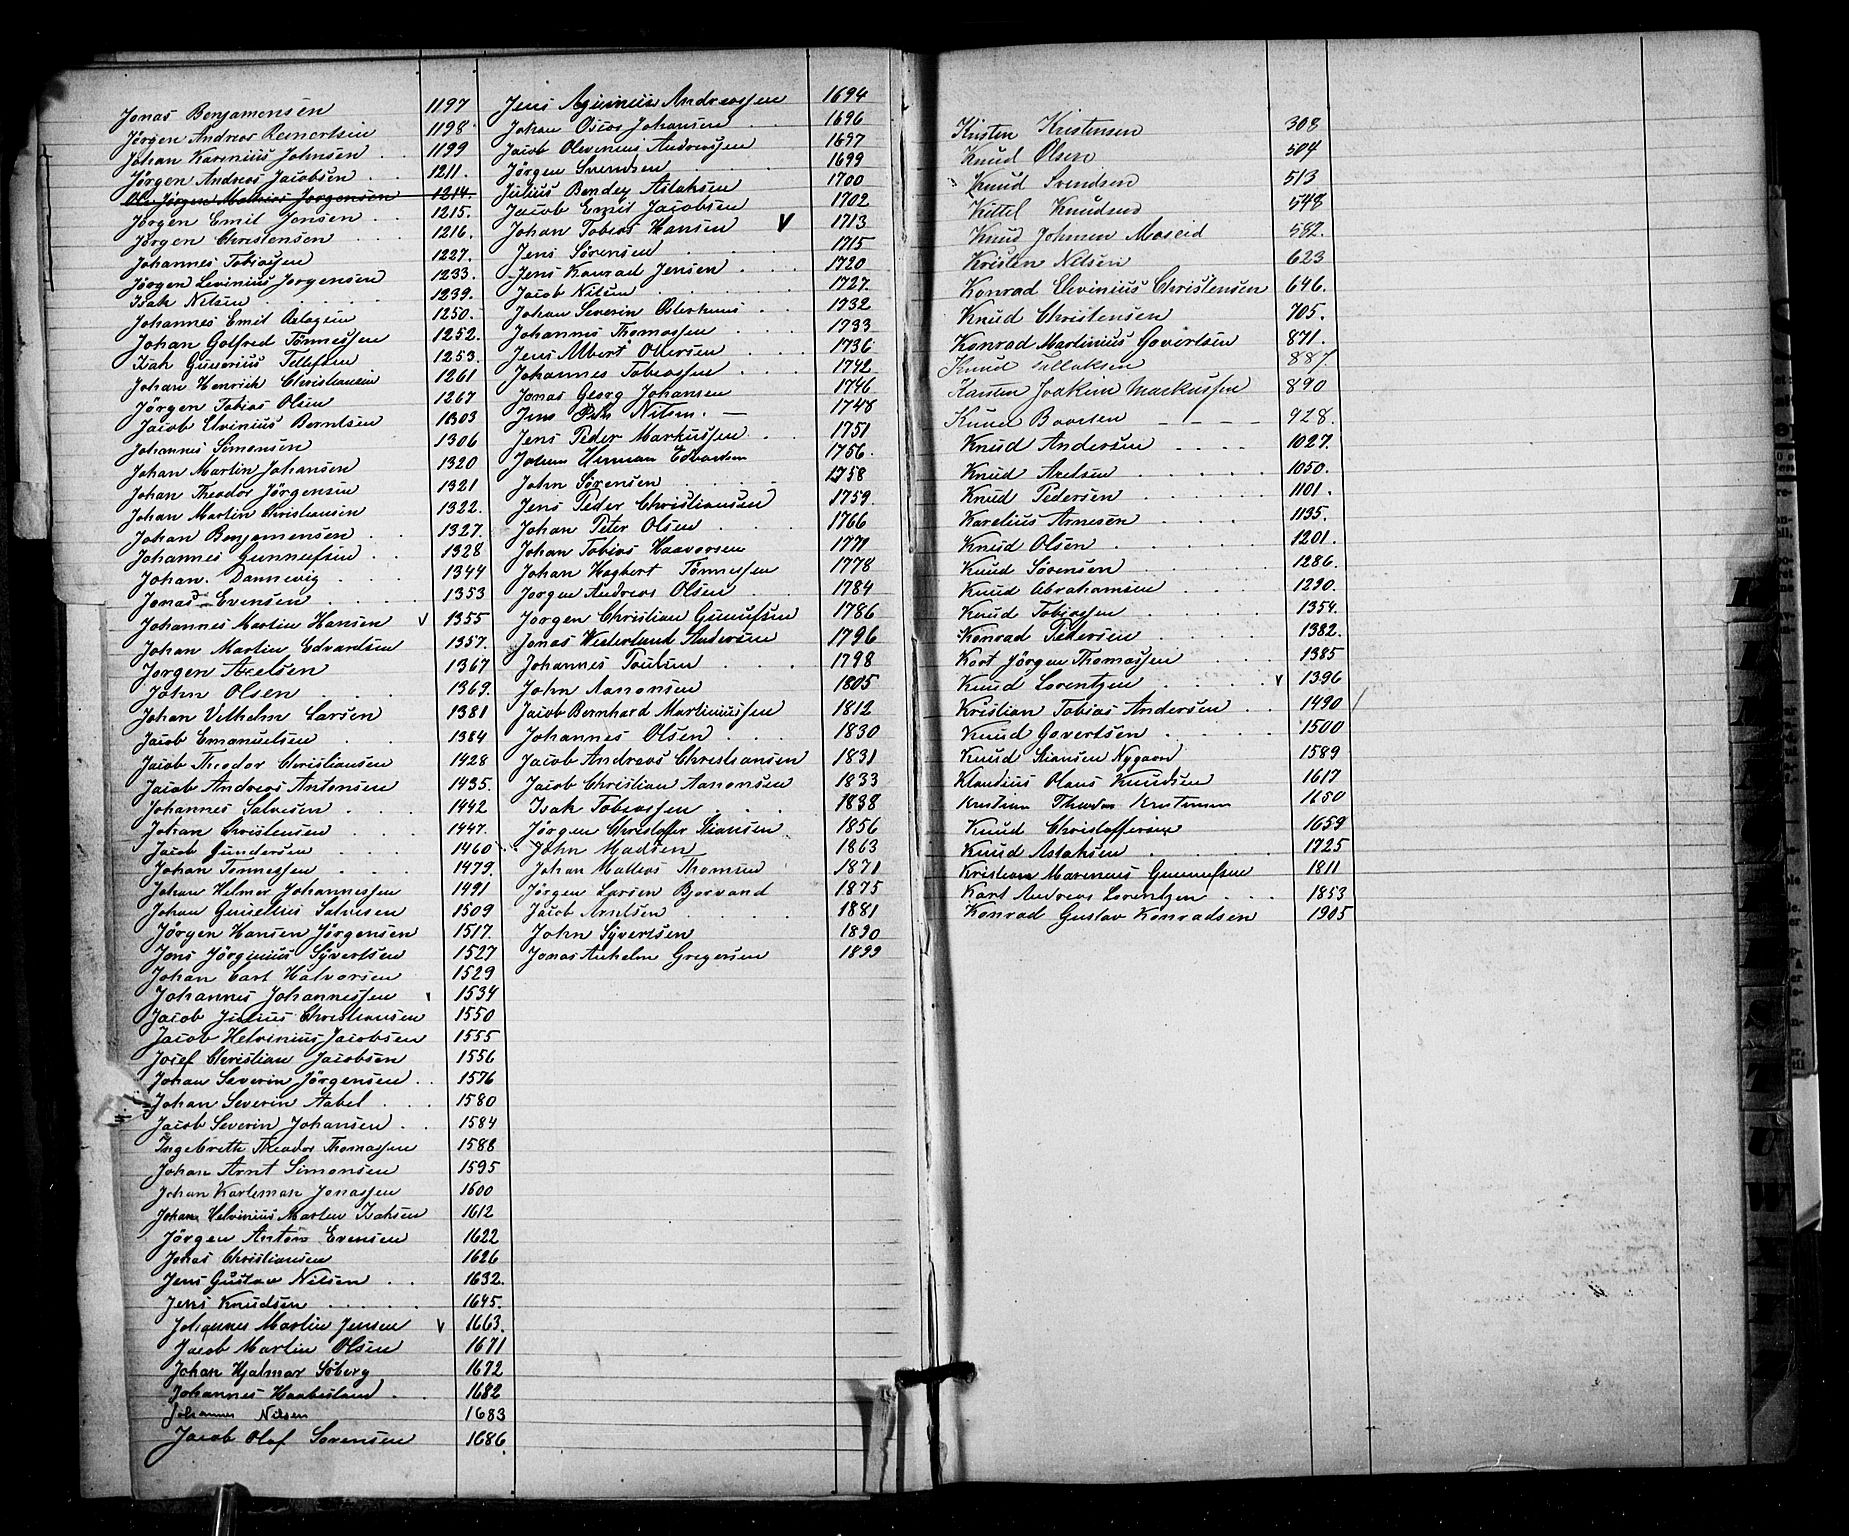 Jonas Benjamensen 1197
Jörgen Andreas Reinertsen 1198
Johan Karenius Johnsen 1199
Jörgen Andreas Jacobsen 1211.
Ole Jörgen Mathias Jorgensen 1214
Jörgen Emil Jensen 1215.
Jörgen Christensen 1216.
Johannes Tobiassen 1227.
Jörgen Levinius Jorgensen 1233.
Isak Nilsen 1239.
Johannes Emil 1250.
Johan Golfred Tönnessen 1252.
Isak Gunerius Tellefsen 1253.
Johan Henrick Christiansen 1261
Jörgen Tobias Olsen 1267
Jacob Elvinius Berntsen 1303
Johannes Simonsen 1306
Johan Martin Johansen 1320
Johan Theodor Jörgensen 1321
Johan Martin Christiansen 1322.
Johan Benjamensen 1327.
Johannes Gunnufsen 1328
Johan. Dannevig 1344
Jonas Evensen 1353
Johannes Martin Hansen V 1355
Johan Martin Edvardsen 1357.
Jorgen Axelsen 1367
John Olsen 1369.
Johan Vilhelm Larsen 1381
Jacob Emanuelsen 1384
Jacob Theodor Christiansen 1428
Jacob Andreas Antonsen 1435.
Johannes Salvesen 1442
Johan Christensen 1447.
Jacob Gundersen 1460
Johan Tonnessen 1479.
Johan Helmer Johannessen 1491
Johan Guselius Salvesen 1509
Jørgen Hansen Jørgensen 1517.
Jens Jörginius Syvertsen 1527
Johan Carl Halvorsen 1529
Johannes Johannessen 1534
Jacob Julius Christiansen 1550
Jacob Helvinius Jacobsen 1555
Josef Christian Jacobsen 1556
Johan Severin Jörgensen 1576
Johan Severin Aabel 1580
Jacob Severin Johansen 1584
Ingebreth Theodor Thomassen 1588
Johan Arnt Simonsen 1595
Johan Karleman Jonassen 1600
Johan Helvinius Martin Isaksen 1612
Jörgen Anton Evensen 1622
Jonas Christiansen 1626
Jens Gustav Nilsen 1632.
Jens Knudsen 1645.
Johannes Martin Jensen V 1663.
Jacob Martin Olsen 1671
Johan Hjalmar Söberg 1672
Johannes Haabesland 1682
Johannes Nilsen 1683
Jacob Olaf Sorensen 1686.
Jens Andreassen 1694
Johan Oscar Johansen 1696
Jacob Olevenius Andreassen 1697
Jörgen Svendsen 1699
Julius Bendey Aslaksen 1700
Jacob Emil Jacobsen 1702
Johan Tobias Hansen V 1713
Jens Sörensen 1715
Jens Konrad Jensen 1720
Jacob Nilsen 1727.
Johan Severin Osterhuus 1732
Johannes Thomassen 1733
Jens Albert Olversen 1736
Johannes Tobiassen 1742
Jonas Georg Johansen 1746
Jens Nilsen. 1748
Jens Peder Markussen 1751
Johan Herman Edvardsen 1756.
John Sörensen 1758
Jens Peder Christiansen 1759.
Johan Peter Olsen 1766
Johan Tobias Haavorsen 1771
Johan Hagbert Tönnessen 1778
Jorgen Andreas Olsen 1784
Jorgen Christian Gunufsen 1786
Jonas Vesterlund Andersen 1796
Johannes Poulsen 1798
John Aanonsen 1805
Jacob Bernhard Martiniussen 1812
Johannes Olsen 1830
Jacob Andreas Christiansen 1831
Jacob Christian Aanonsen 1833
Isak Tobiassen 1838
Jörgen Christoffer Stiansen 1856
John Madsen 1863
Johan Mathias Thomsen 1871
Jörgen Larsen Bjorvand 1875
Jacob Arntsen 1881
John Syvertsen 1890
Jonas Anhelm Gregersen 1899
Kristen Kristensen 308
Knud Olsen 504
Knud Svendsen 513
Kittel Knudsen 548
Knud Johnsen Moseid 582.
Kristen Nelsen 623
Konrad Elvinius Christensen 646.
Knud Christensen 705.
Konrad Martinius Govertsen 871.
Knud Tellaksen 887.
Karsten Joakim Markussen 890
Knud Baarsen 928.
Knud Andersen 1027.
Knud Axelsen 1050.
Knud Pedersen 1101.
Karelius Arnesen 1135.
Knud Olsen 1201.
Knud Sörensen 1286.
Knud Abrahamsen 1290.
Knud Tobiassen 1354.
Konrad Pedersen 1382.
Kart Jörgen Thomassen 1385
Knud Lorentzen V 1396
Kristian Tobias Andersen 1490
Knud Govertsen 1500
Knud Stiansen Nygaard 1589
Klaudius Olaus Knudsen 1617
Kristian Theodor Kristensen 1650
Knud Christoffersen 1659
Knud Aslaksen 1725
Kristian Marenius Gunnufsen 1811
Karl Andreas Lorentzen 1853
Konrad Gustav Konradsen 1905